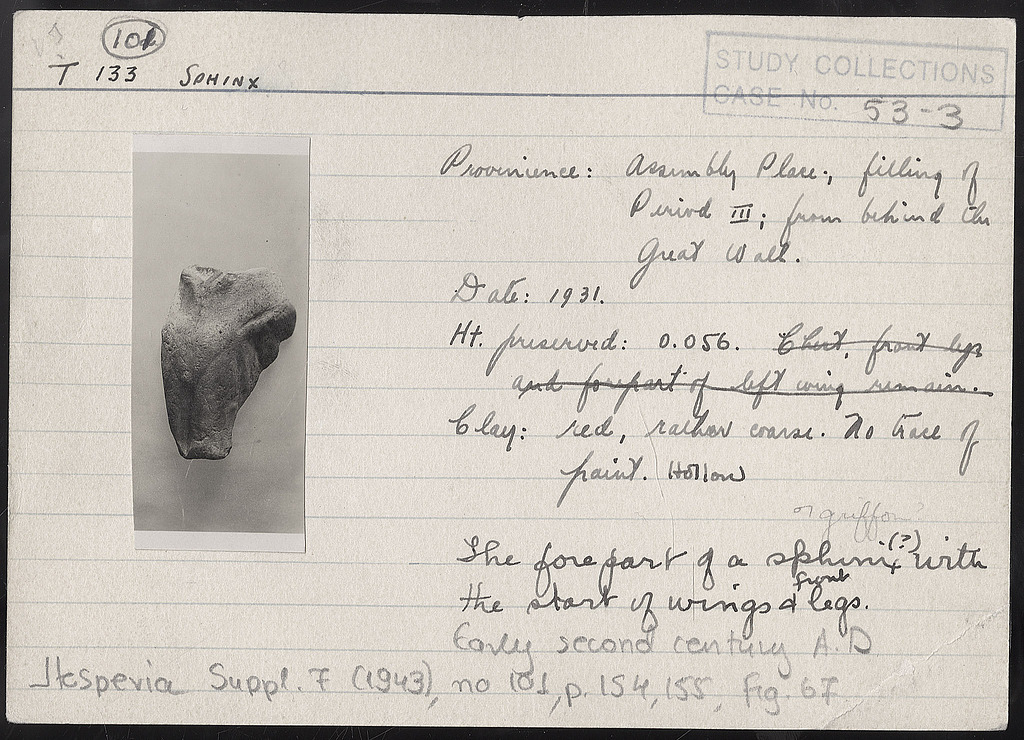 101
T 133 SPHINX
STUDY COLLECTIONS
CASE No. 53-3
Provinience: Assembly Place, filling of
Period III; from behind the
Great Wall.
Date: 1931.
Ht. preserved: 0.056. Chest, front legs
and forepart of left wing remain.
Clay: red, rather coarse. No trace of
paint. Hollow
or griffon?
The forepart of a sphinx (?) with
the start of wings & front legs.
Early second century A.D
Hesperia Suppl. 7 (1943), no 101, p. 154, 155, Fig. 67